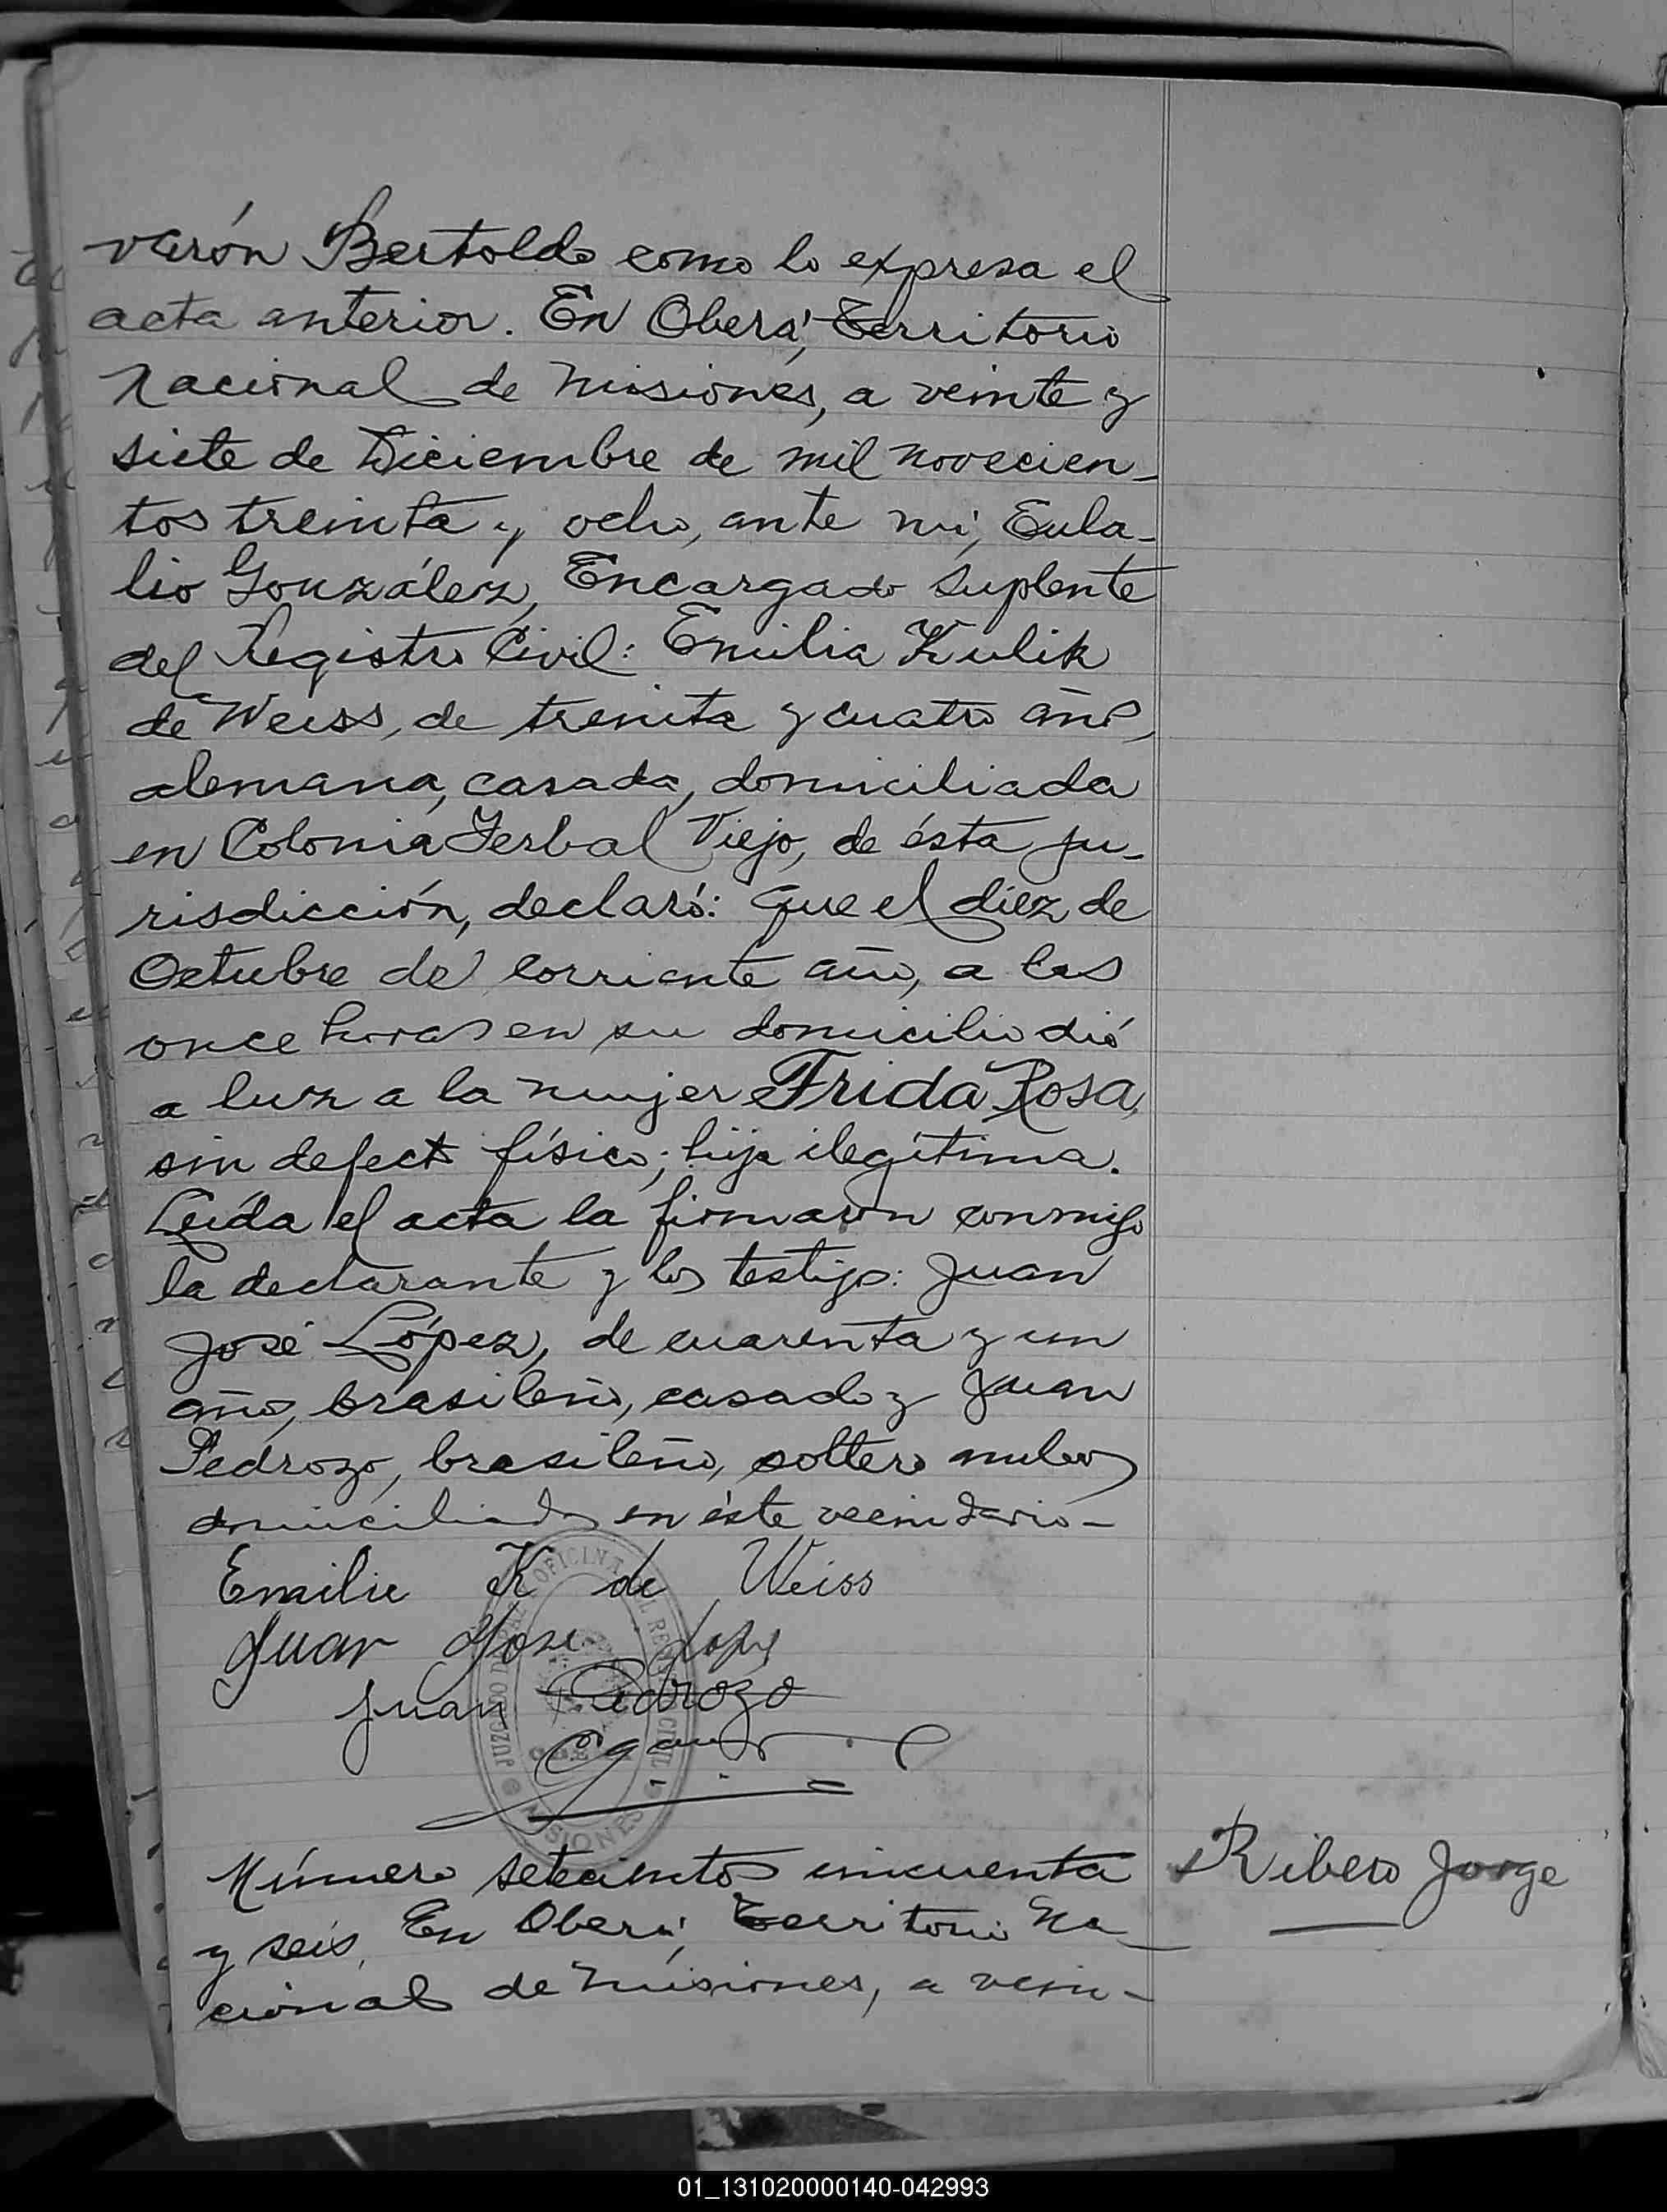 varón Bertoldo como lo expresa el
acta anterior. En Oberá, Territorio
Nacional de Misiones, a veinte y
siete de Diciembre de mil novecien-
tos treinta y ocho, ante mi, Eula-
lio González, Encargado Suplente
del Registro Civil: Emilia Kulik
de Weiss, de treinta y cuatro años,
alemana, casada, domiciliada
en Colonia Yerbal Viejo, de ésta ju-
risdicción, declaró: que el diez de
Octubre del corriente año, a las
once horas en su domicilio dió
a luz a la mujer Frida Rosa,
sin defecto físico; hija ilegítima.
Leída el acta la firmaron conmigo
la declarante y los testigos: Juan
José López, de cuarenta y un
años, brasileño, casado y Juan
Pedrozo, brasileño, soltero ambos
domiciliados en éste vecindario-
Emilie K de Weiss
Juan Jose Lopez
Juan Pedrozo
JUZGADO DE PAZ Y OFICINA DEL REGISTRO CIVIL
OBERA
MISIONES
Número setecientos cincuenta
y seis. En Oberá, Territorio Na-
cional de Misiones, a vein-
Ribero Jorge
01_131020000140-042993